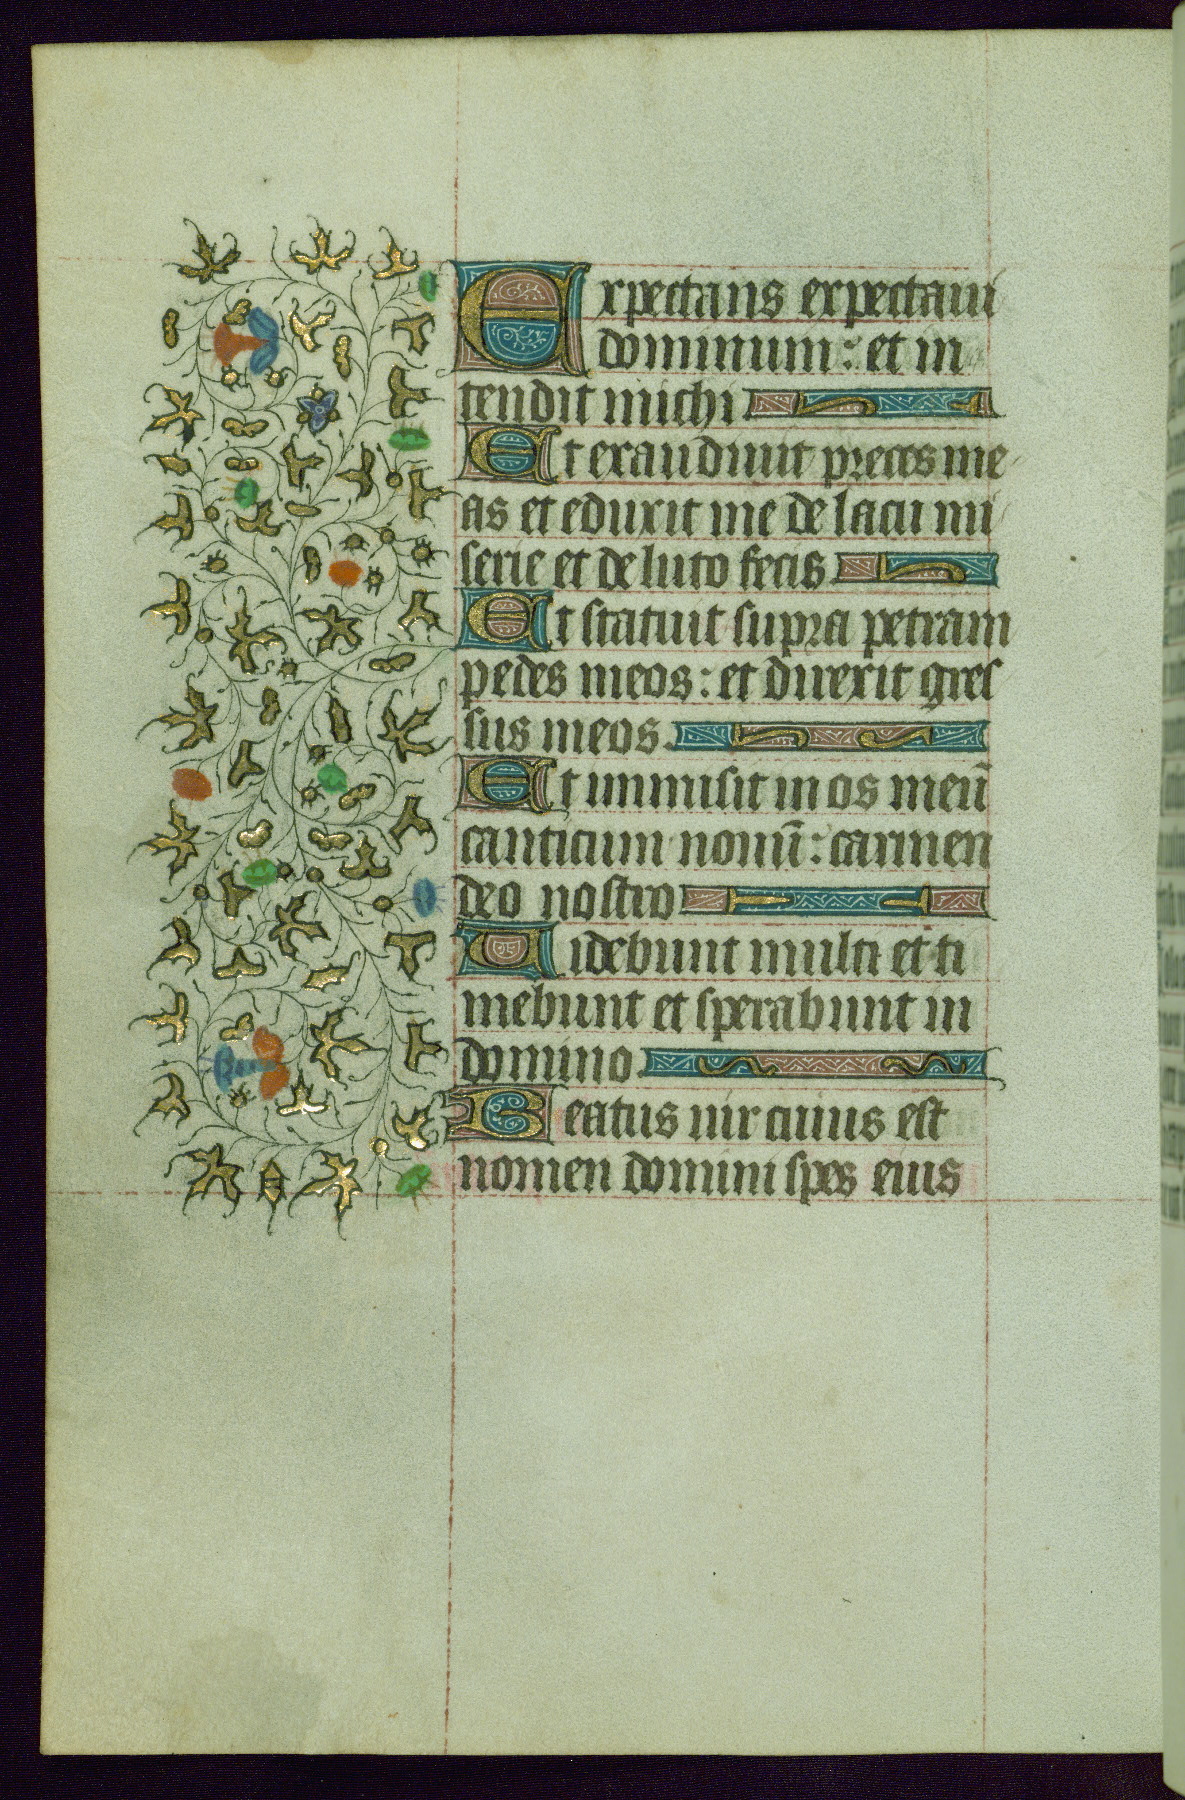 Expectans expectaui
dominum: et in
tendit michi
Et exaudiuit preces me
as et eduxit me de lacu mi
serie et de luto fecis
Et statuit supra petram
pedes meos: et direxit gres
sus meos.
Et immisit in os meū
canticum nouū: carmen
deo nostro
Uidebunt multi et ti
mebunt et sperabunt in
domino.
Beatus uir cuius est
nomen domini spes eius